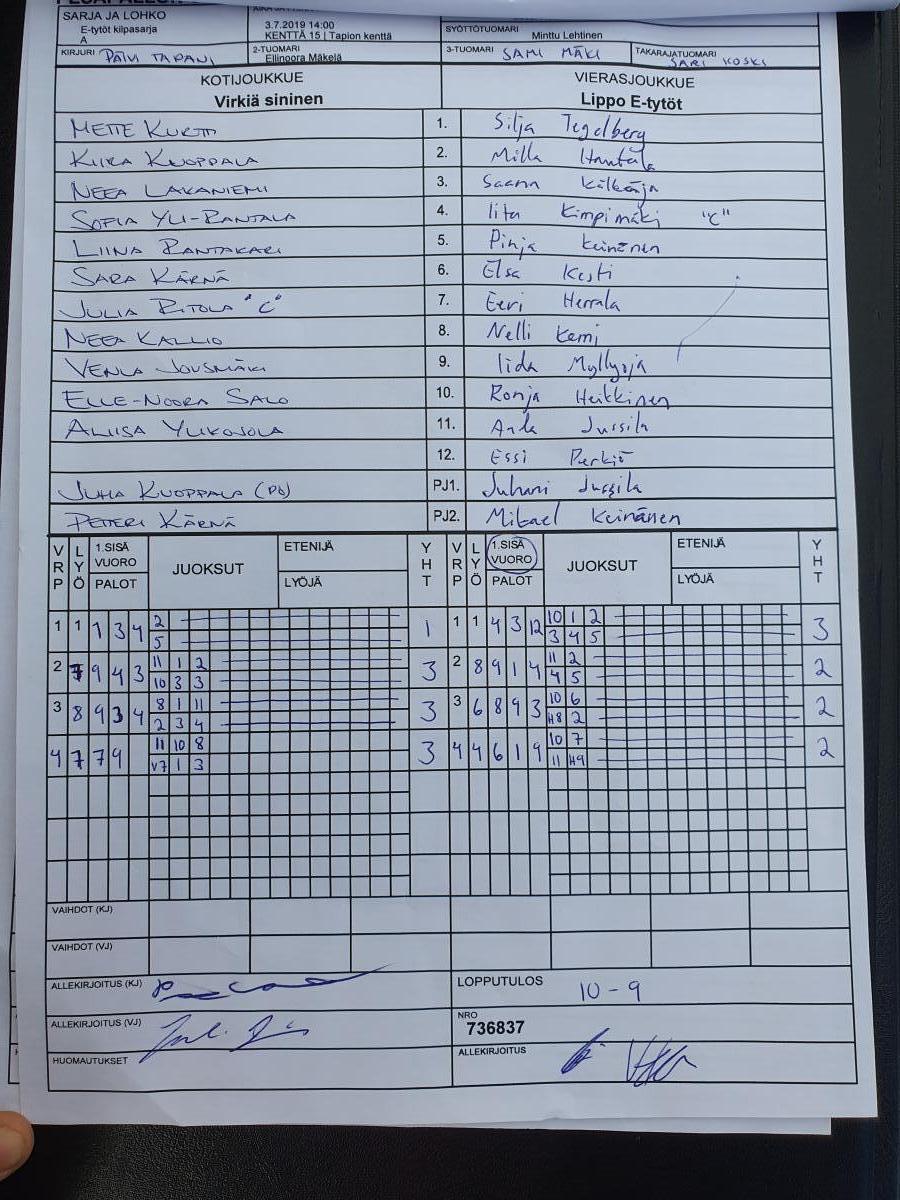 SARJA JA LOHKO
E-tytöt kilpasarja
A
3.7.2019 14:00
KENTTÄ 15 | Tapion kenttä
SYÖTTÖTUOMARI
Minttu Lehtinen
KIRJURI PÄIVI TAPANI
2-TUOMARI
Ellinoora Mäkelä
3-TUOMARI SAMI MÄKI
TAKARAJATUOMARI
SARI KOSKI
KOTIJOUKKUE VIERASJOUKKUE
Virkiä sininen Lippo E-tytöt
METTE KURTTI 1. Silja Tegelberg
KIIRA KUOPPALA 2. Milla Hantula
NEEA LAKANIEMI 3. Saana Kälkäjä
SOFIA YLI-RANTALA 4. Iita Kimpimäki "C"
LIINA RANTAKARI 5. Pinja Keinänen
SARA KÄRNÄ 6. Elsa Kesti
JULIA RITOLA "C" 7. Eevi Herrala
NEEA KALLIO 8. Nelli Kemi
VENLA JOUSMÄKI 9. Iida Myllyoja
ELLE-NOORA SALO 10. Ronja Heikkinen
ALIISA YLIKOJOLA 11. Jussila
12. Essi Perkiö
JUHA KUOPPALA (PJ) PJ1. Juhani Jussila
PETTERI KÄRNÄ PJ2. Mikael Keinänen
VRP LYÖ 1.SISÄ VUORO PALOT JUOKSUT ETENIJÄ LYÖJÄ YHT VRP LYÖ 1.SISÄ VUORO PALOT JUOKSUT ETENIJÄ LYÖJÄ YHT
1 1 1 3 4 2 1 1 1 4 3 12 10 1 2 3
5 3 4 5
2 7 9 4 3 11 1 2 3 2 8 9 1 4 11 2 2
10 3 3 4 5
3 8 9 3 4 8 1 11 3 3 6 8 9 3 10 6 2
2 3 4 H8 2
4 7 7 9 11 10 8 3 4 4 6 1 9 10 7 2
V7 1 3 11 H9
VAIHDOT (KJ)
VAIHDOT (VJ)
ALLEKIRJOITUS (KJ) LOPPUTULOS 10 - 9
ALLEKIRJOITUS (VJ) NRO
736837
HUOMAUTUKSET ALLEKIRJOITUS